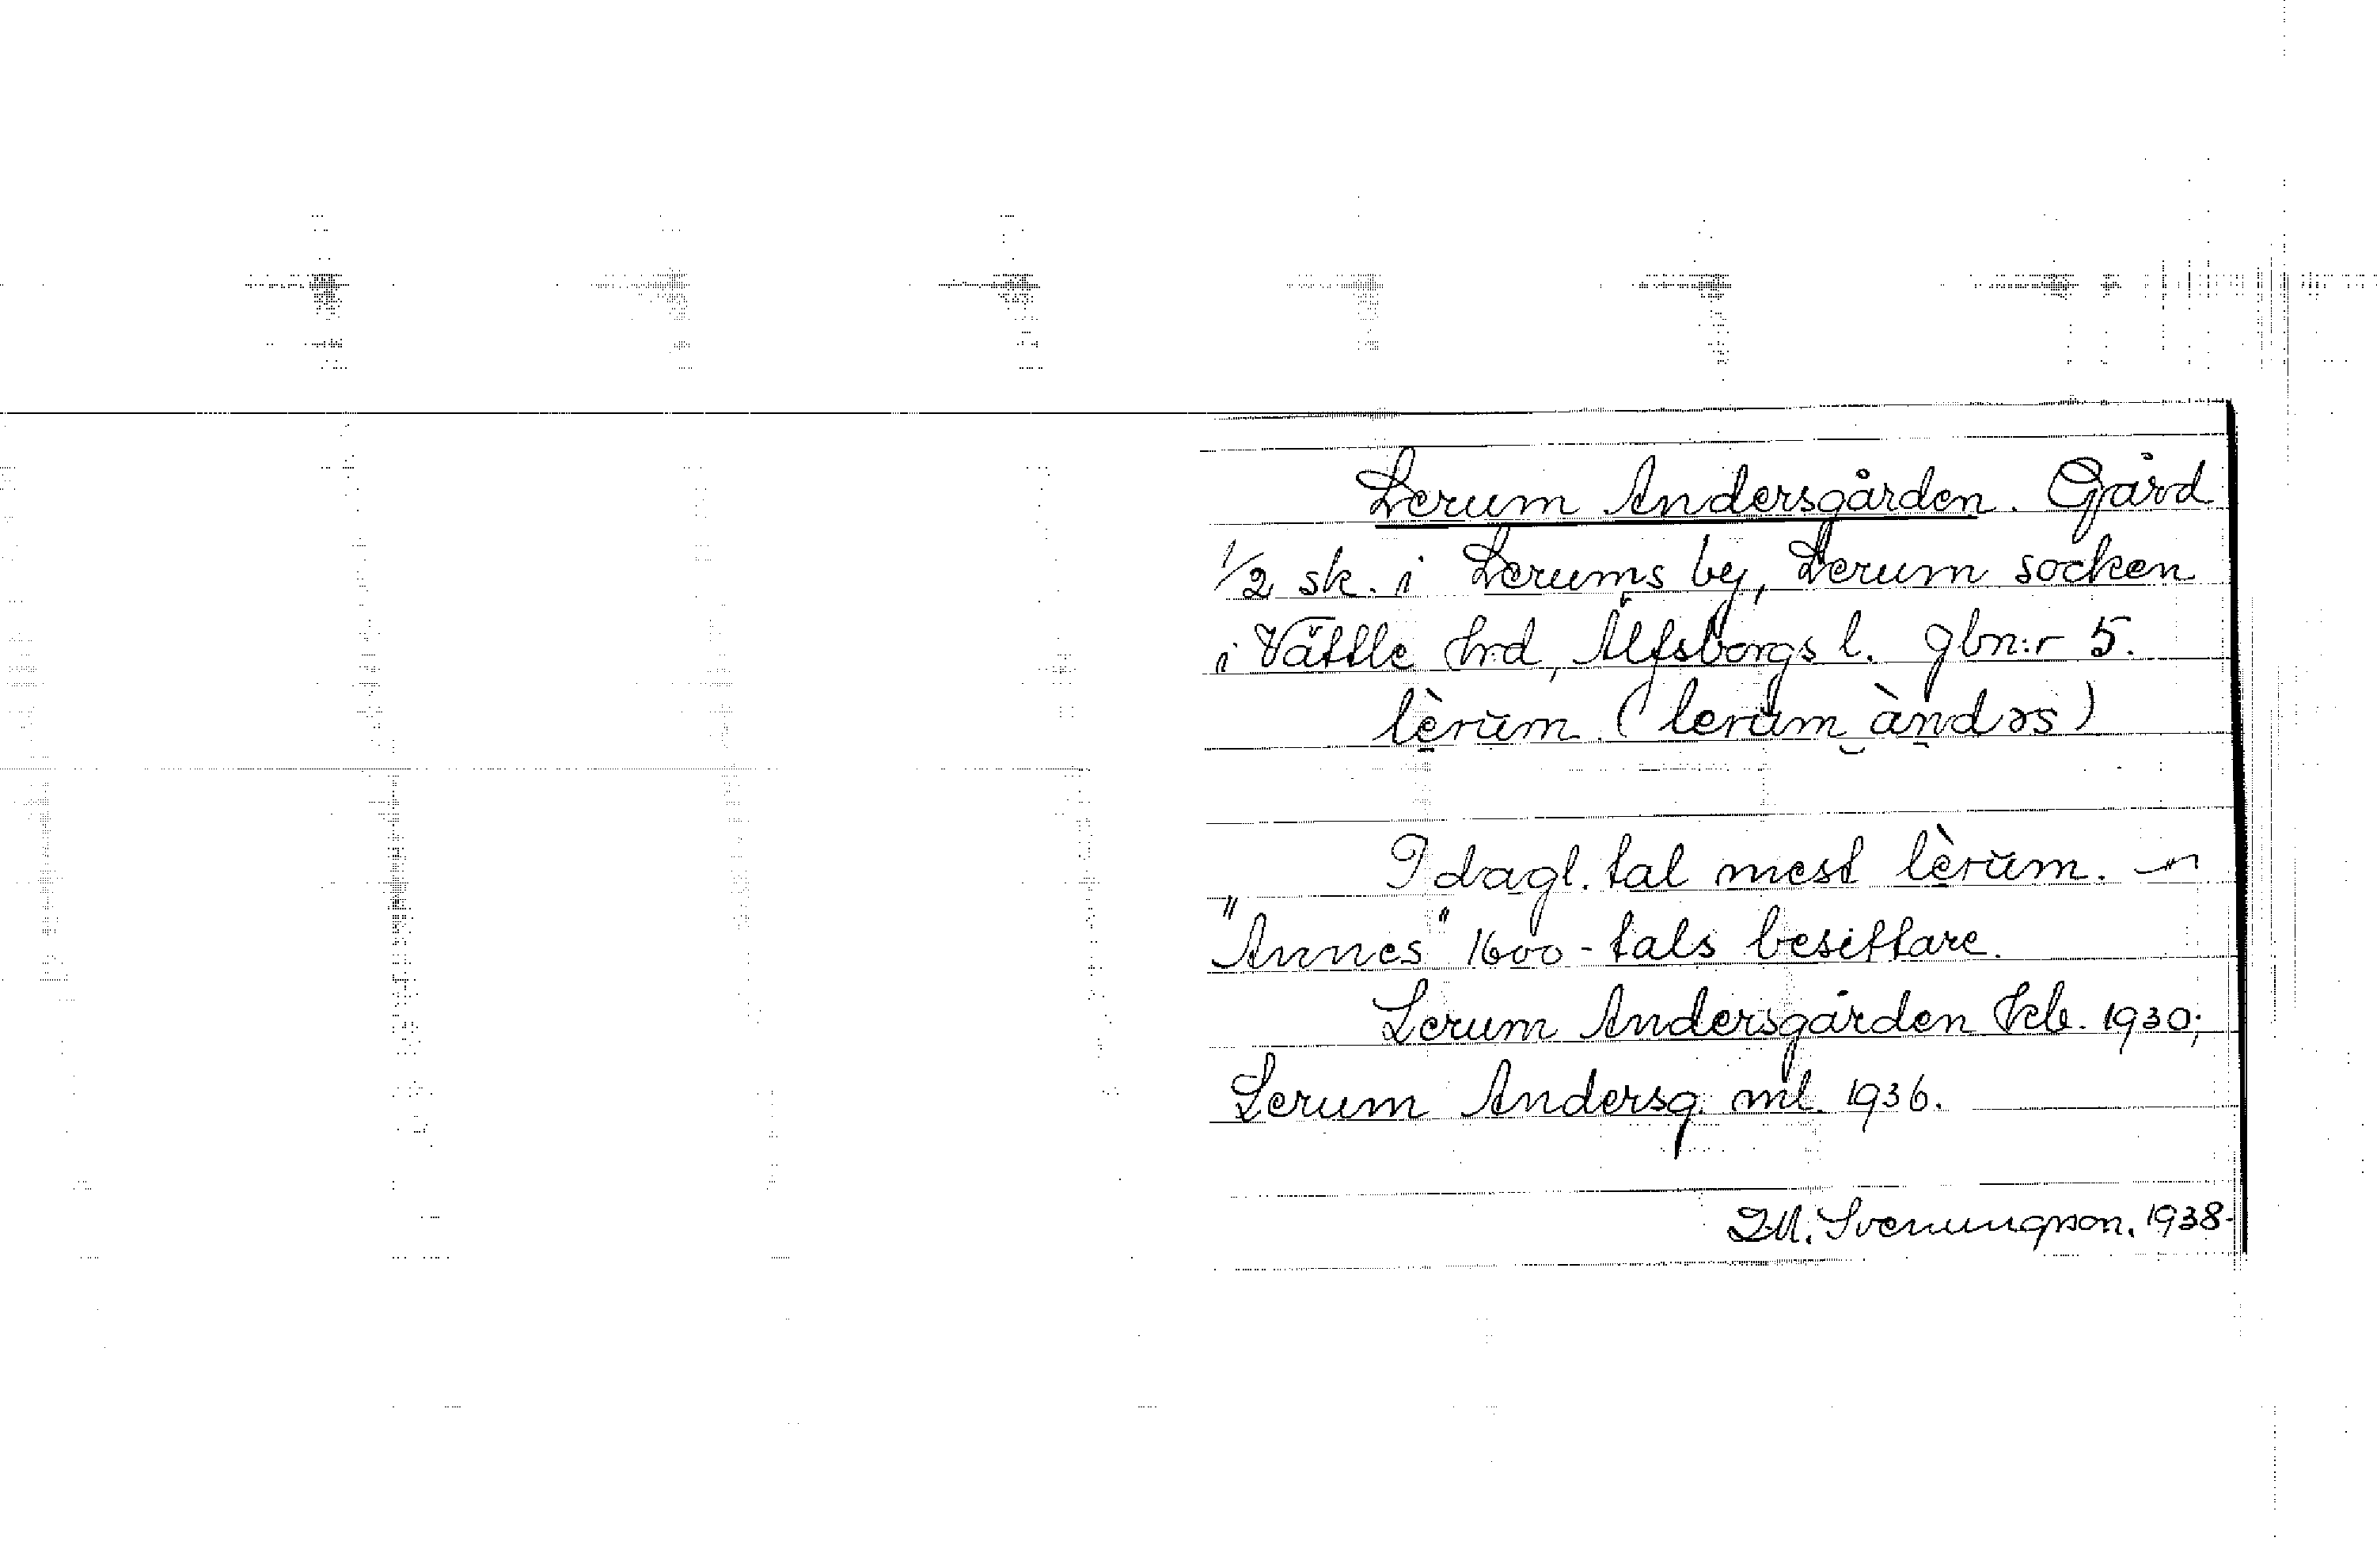 Lerum Andersgården. Gård
1/2 sk. i Lerums by, Lerum socken
i Vättle hrd, Älfsborgs l. gbn:r 5.
lèrŭm (lerŭm àndɘs)
I dagl. tal mest lèrŭm. —
"Annes" 1600-tals besittare.
Lerum Andersgården Jkb. 1930;
Lerum Andersg. ml. 1936.
Svenungson. 1938.